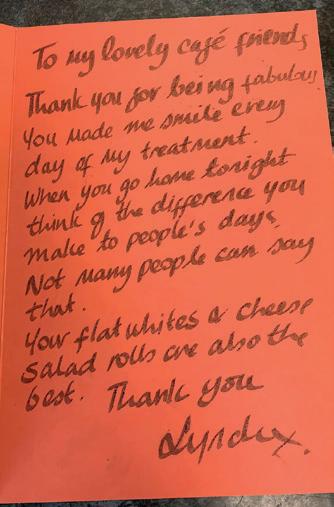 To my lovely café friends
Thank you for being fabulous
You made me smile every
day of my treatment.
When you go home tonight
think of the difference you
make to people's days.
Not many people can say
that.
Your flat whites & cheese
salad rolls are also the
best. Thank you
Lynda x.